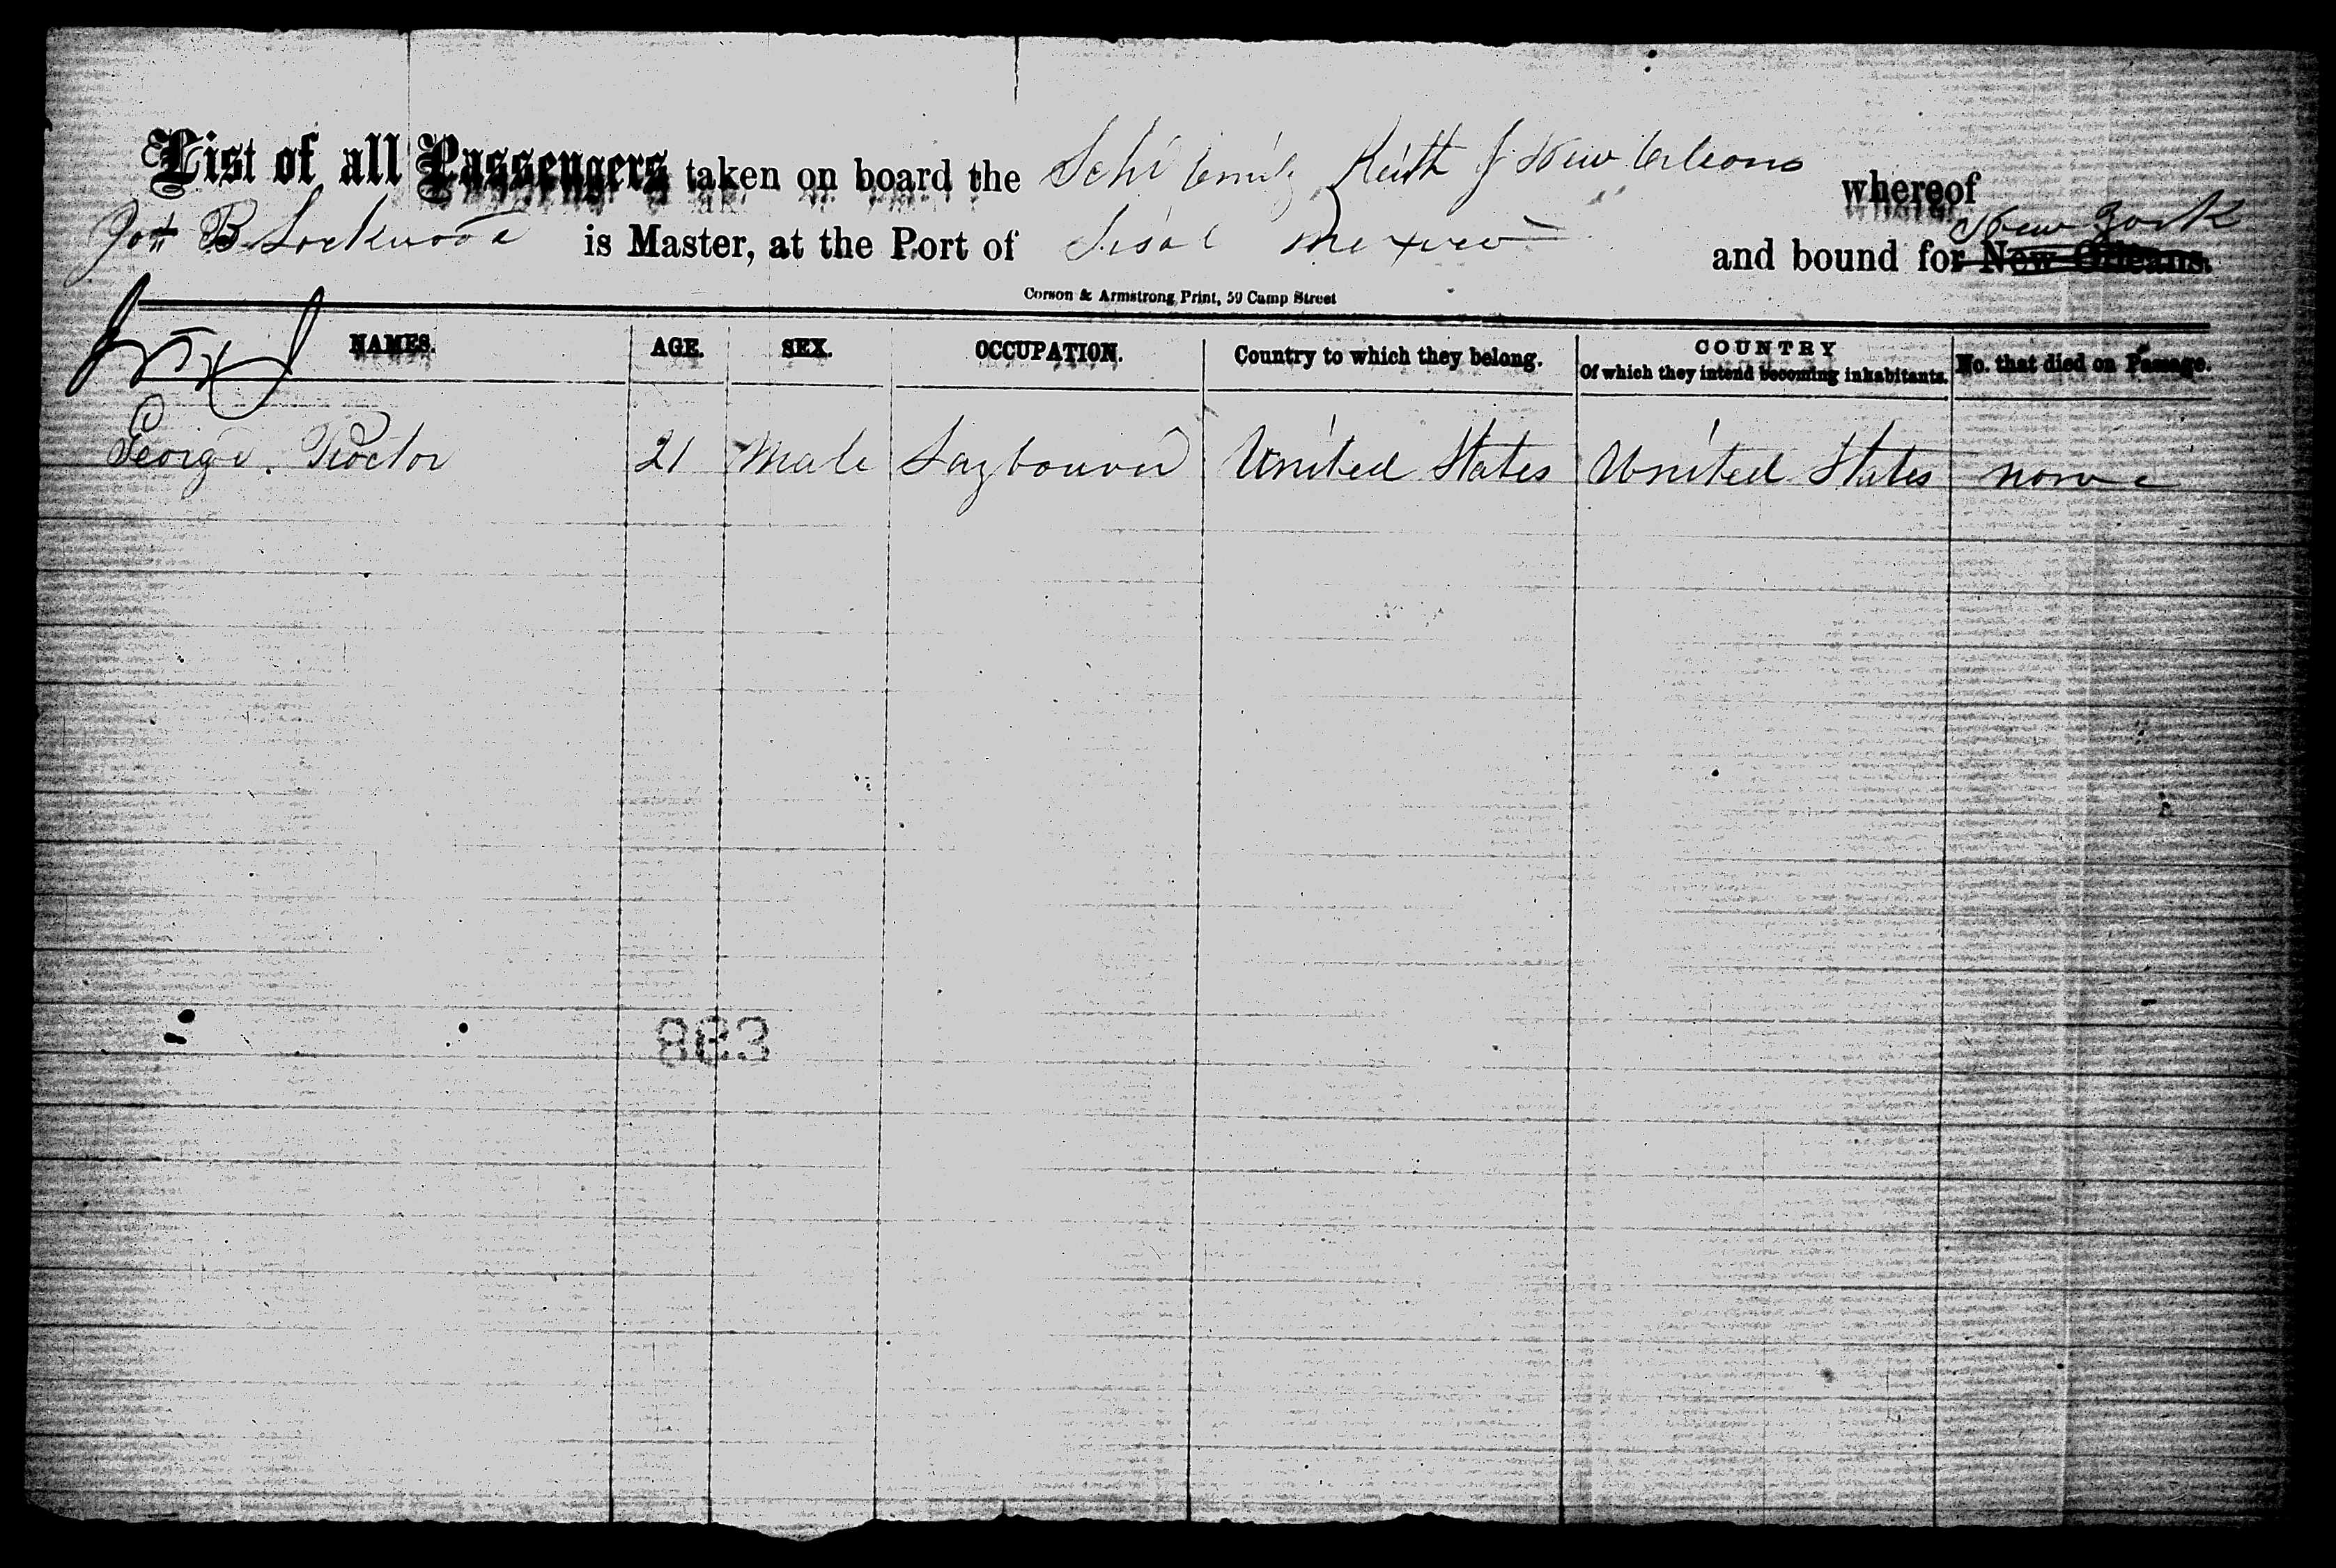 List of all Passengers taken on board the Schr Emily Keith of New Orleans whereof
B Lockwood is Master, at the Port of Sisal Mexico and bound for New York New Orleans.
Corson & Armstrong Print, 59 Camp Street
NAMES. AGE. SEX. OCCUPATION. Country to which they belong. COUNTRY Of which they intend becoming inhabitants. No. that died on Passage.
George. Proctor 21 Male United States United States none
863